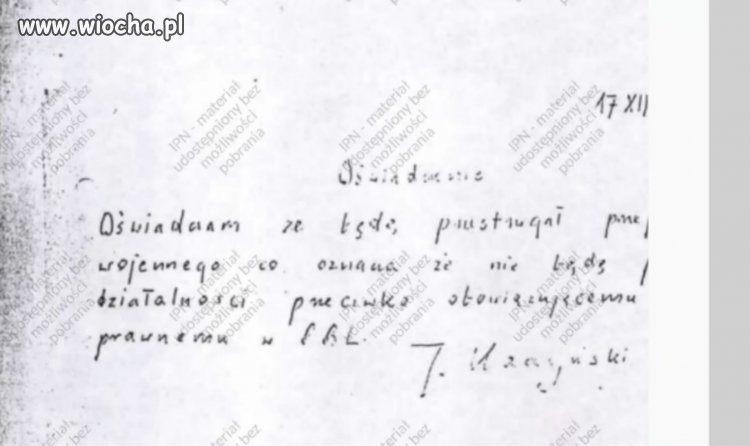 www.wiocha.pl
17 XII
Oświadczenie
Oświadczam ze będę przestrzegał prze
wojennego co oznacza że nie będę
działalności przeciwko obowiązującemu
prawnemu w PRL.
J.
IPN - materiał
udostępniony bez
możliwości
pobrania